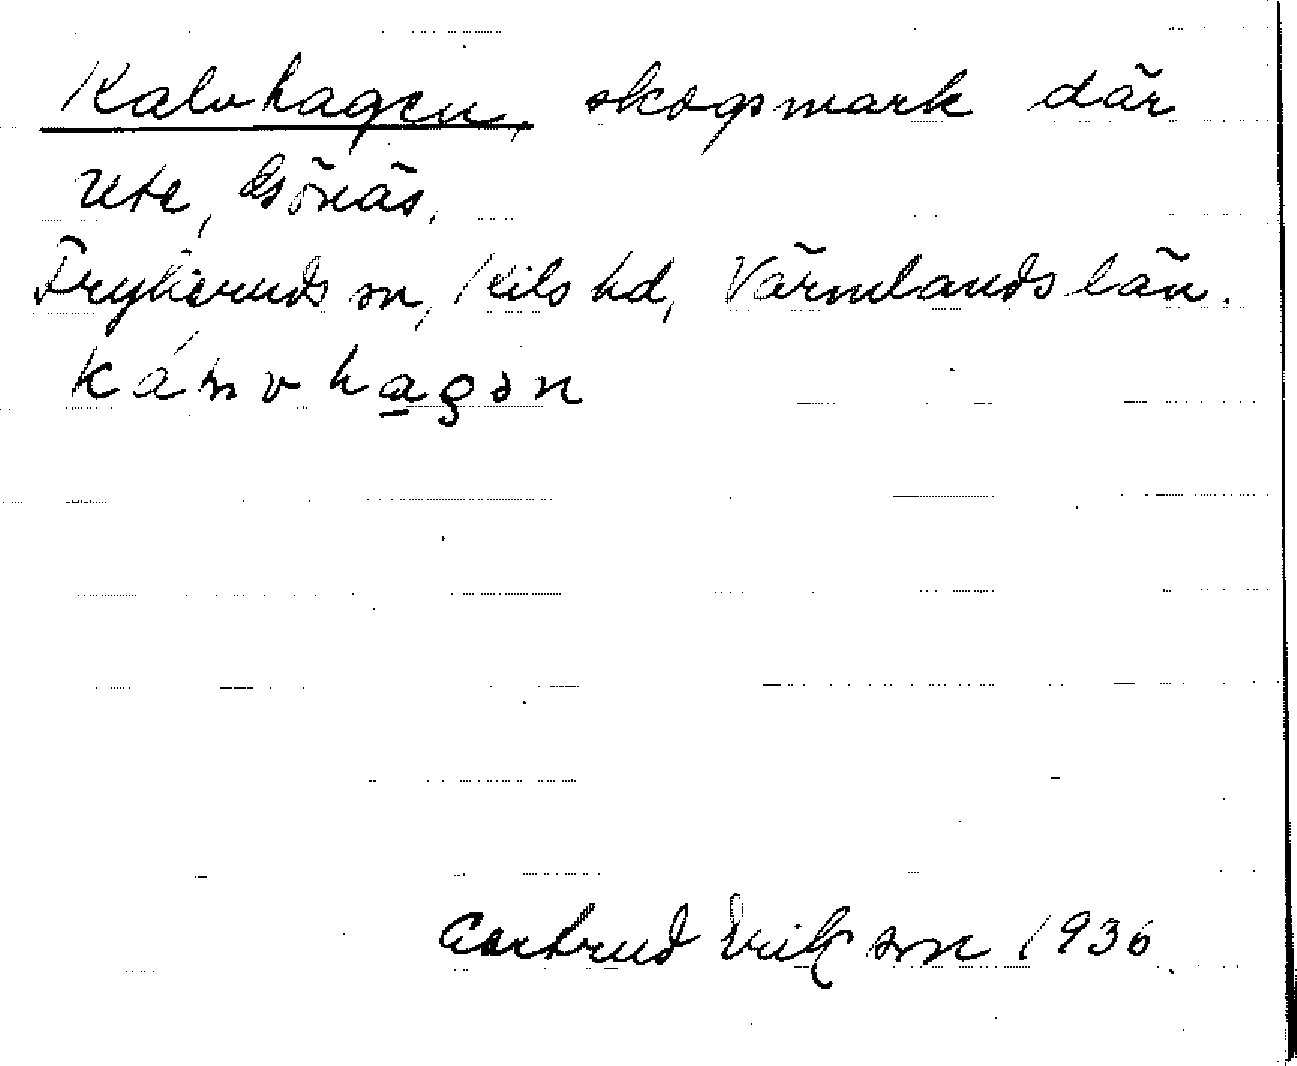 Kalvhagen, skogsmark där
ute, Gönäs,
Fryksruds sn, Kils hd, Värmlands län.
hagən
Gertrud Erikson 1936